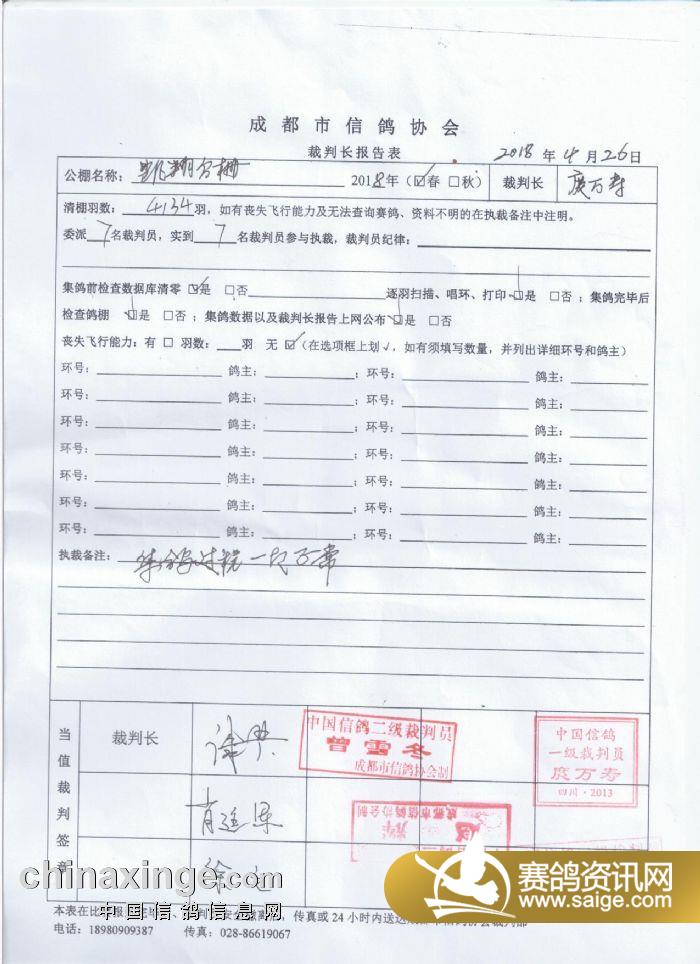 成都市信鸽协会
裁判长报告表 2018年4月26日
公棚名称：凯翔公棚 2018年（☑春 □秋） 裁判长 庹万寿
清棚羽数：4134羽，如有丧失飞行能力及无法查询赛鸽、资料不明的在执裁备注中注明。
委派7名裁判员，实到7名裁判员参与执裁，裁判员纪律：
集鸽前检查数据库清零 ☑是 □否 逐羽扫描、唱环、打印 ☑是 □否；集鸽完毕后
检查鸽棚 ☑是 □否；集鸽数据以及裁判长报告上网公布 ☑是 □否
丧失飞行能力：有 □ 羽数：羽 无 ☑（在选项框上划√，如有须填写数量，并列出详细环号和鸽主）
环号： 鸽主： ；环号： 鸽主：
环号： 鸽主： ；环号： 鸽主：
环号： 鸽主： ；环号： 鸽主：
环号： 鸽主： ；环号： 鸽主：
环号： 鸽主： ；环号： 鸽主：
环号： 鸽主： ；环号： 鸽主：
环号： 鸽主： ；环号： 鸽主：
执裁备注：集鸽过程一切正常
当值裁判签章
裁判长
中国信鸽二级裁判员
曾雪冬
成都市信鸽协会制
中国信鸽
一级裁判员
庹万寿
四川·2013
成都市信鸽协会制
chinaxinge.com
中国信鸽信息网
赛鸽资讯网
www.saige.com
本表在比 传真或24小时内送达成都市信鸽协会裁判部
电话：18980909387 传真：028-86619067